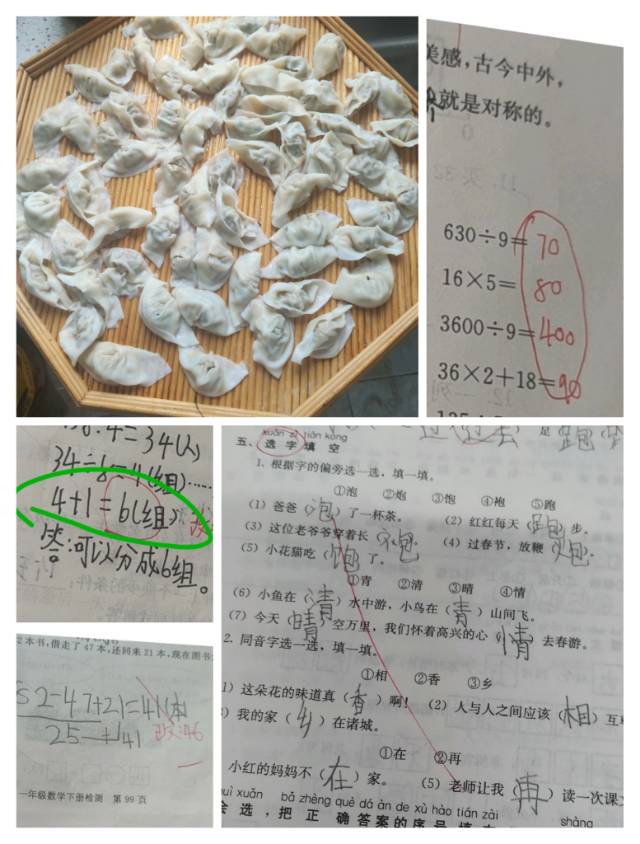 美感，古今中外，
就是对称的。
630÷9=70
16×5=80
3600÷9=400
36×2+18=90
34÷8=4(组)……
4+1=6(组)
答:可以分成6组。
本书，借走了 47 本，还回来 21 本，现在图书
52-47+21=41(本)
25
41
一年级数学下册检测 第 99 页
xuǎn zì tián kòng
五、选字填空
1. 根据字的偏旁选一选，填一填。
①泡 ②炮 ③饱 ④袍 ⑤跑
(1) 爸爸（泡）了一杯茶。 (2) 红红每天（跑）步。
(3) 这位老爷爷穿着长（袍）。 (4) 过春节，放鞭（炮）。
(5) 小花猫吃（饱）了。
①青 ②清 ③晴 ④情
(6) 小鱼在（清）水中游，小鸟在（青）山间飞。
(7) 今天（晴）空万里，我们怀着高兴的心（情）去春游。
2. 同音字选一选，填一填。
①相 ②香 ③乡
1) 这朵花的味道真（香）啊！ (2) 人与人之间应该（相）互
) 我的家（乡）在诸城。
①在 ②再
小红的妈妈不（在）家。 (5) 老师让我（再）读一次课
xuǎn bǎ zhèng què dá àn de xù hào tián zài
会选，把正确答案的序号填在
shàng